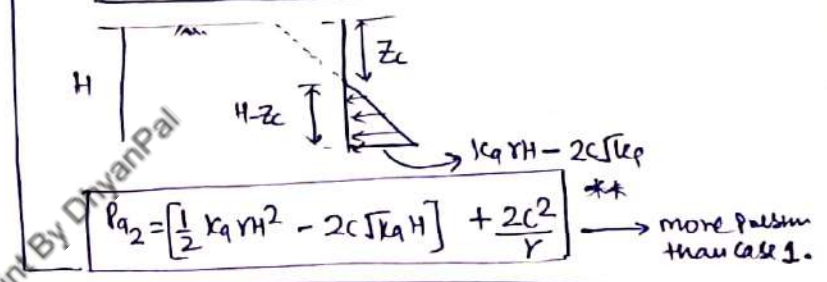 Zc
H
H-Zc
KaγH - 2c√kp
Pa2 = [1/2 KaγH² - 2c√Ka H] + 2c²/γ
**
→ more
than case 1.
By DhyanPal